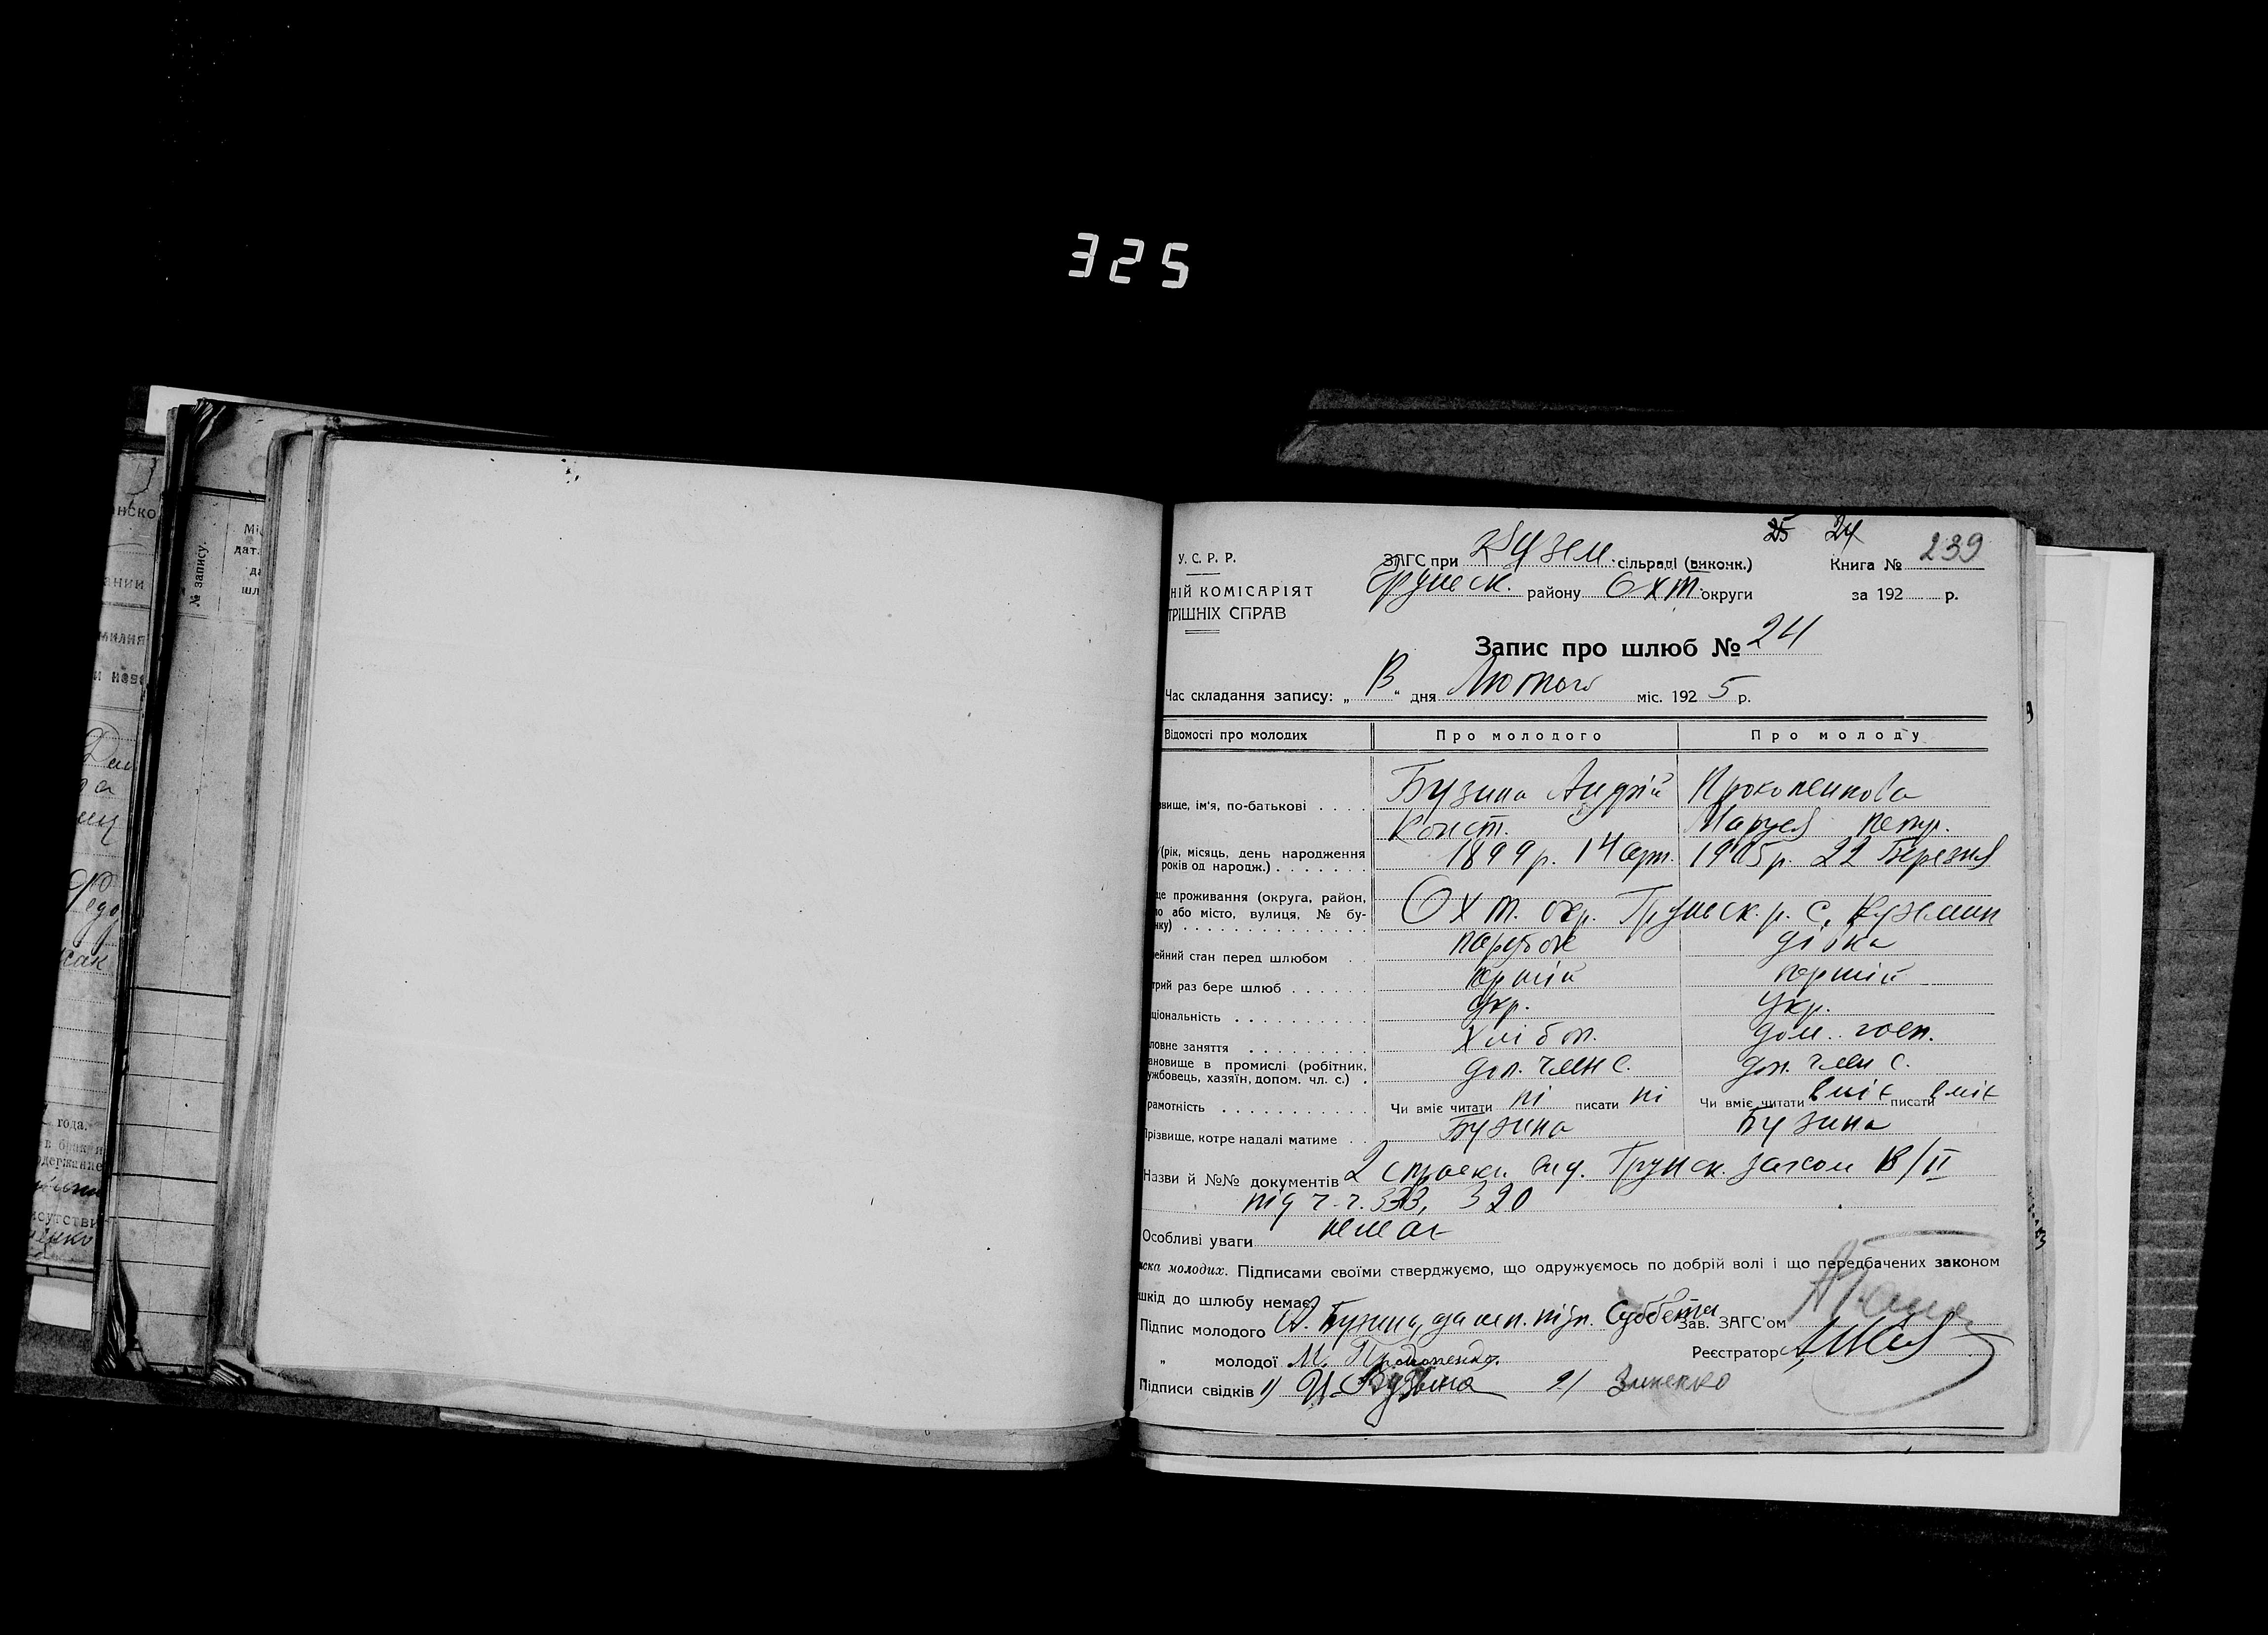 325
25 24 239
У. С. Р. Р.
ЗАГС при Кузем. сільраді (виконк.) Книга №
Груньск. району Охт. округи за 192 р.
НІЙ КОМІСАРІЯТ
ТРІШНІХ СПРАВ
Запис про шлюб № 24
Час складання запису: „ “ дня Лютого міс. 1925 р.
Відомості про молодих Про молодого Про молоду
звище, ім'я, по-батькові . . . . Бузина Андрій Прокопенкова
Конст. Маруся петр.
(рік, місяць, день народження 1899 р. 14 1905 р. 22 Березня
років од народж.) . . . . . . .
це проживання (округа, район,
або місто, вулиця, № бу- Охт. окр. Груньск. р. с. Куземин
нку) . . . . . . . . . . . . . .
ейний стан перед шлюбом . . парубок дівка
трий раз бере шлюб . . . . . . перший перший
ціональність . . . . . . . . . . Укр. Укр.
ловне заняття . . . . . . . . . Хлібоп. дом. госп.
ановище в промислі (робітник,
ужбовець, хазяїн, допом. чл. с.) . доп. член с. доп. член с.
рамотність . . . . . . . . . . . Чи вміє читати ні писати ні Чи вміє читати вміє писати вміє
Прізвище, котре надалі матиме . . Бузина Бузина
Назви й №№ документів 2 вид. Груньск. загсом /II
під ч.ч. 333, 320
Особливі уваги немає
иска молодих. Підписами своїми стверджуємо, що одружуємось по добрій волі і що передбачених законом
шкід до шлюбу немає.
Підпис молодого А. Бузина, за неп. підп. Суббота Зав. ЗАГС'ом
„ молодої М. Прокопенко. Реєстратор
Підписи свідків 1) И. Бузына 2) Зиненко
№ запису.
года.